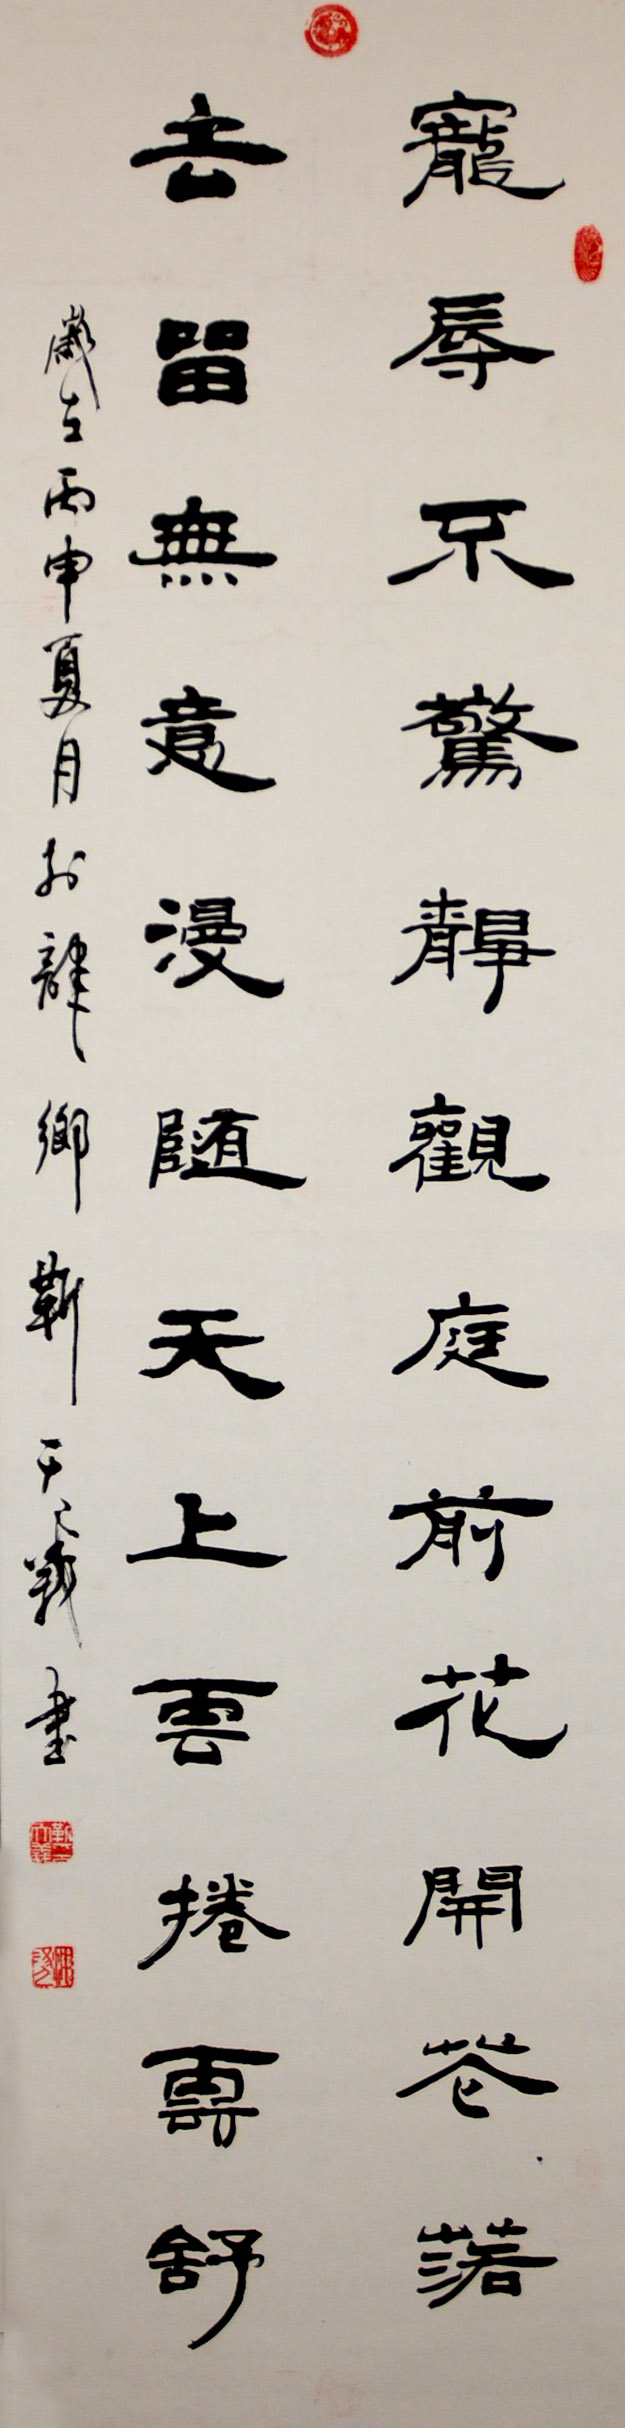 寵辱不驚靜觀庭前花開花落
去留無意漫随天上雲捲雲舒
歲在丙申夏月於肆鄉靳天義書